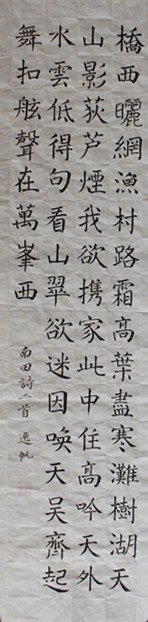 橋西曬網漁村路霜高葉盡寒灘樹湖天
山影荻芦煙我欲携家此中住高吟天外
水雲低得句看山翠欲迷因喚天吴齊起
舞扣舷聲在萬峯西
南田詩二首 逸帆